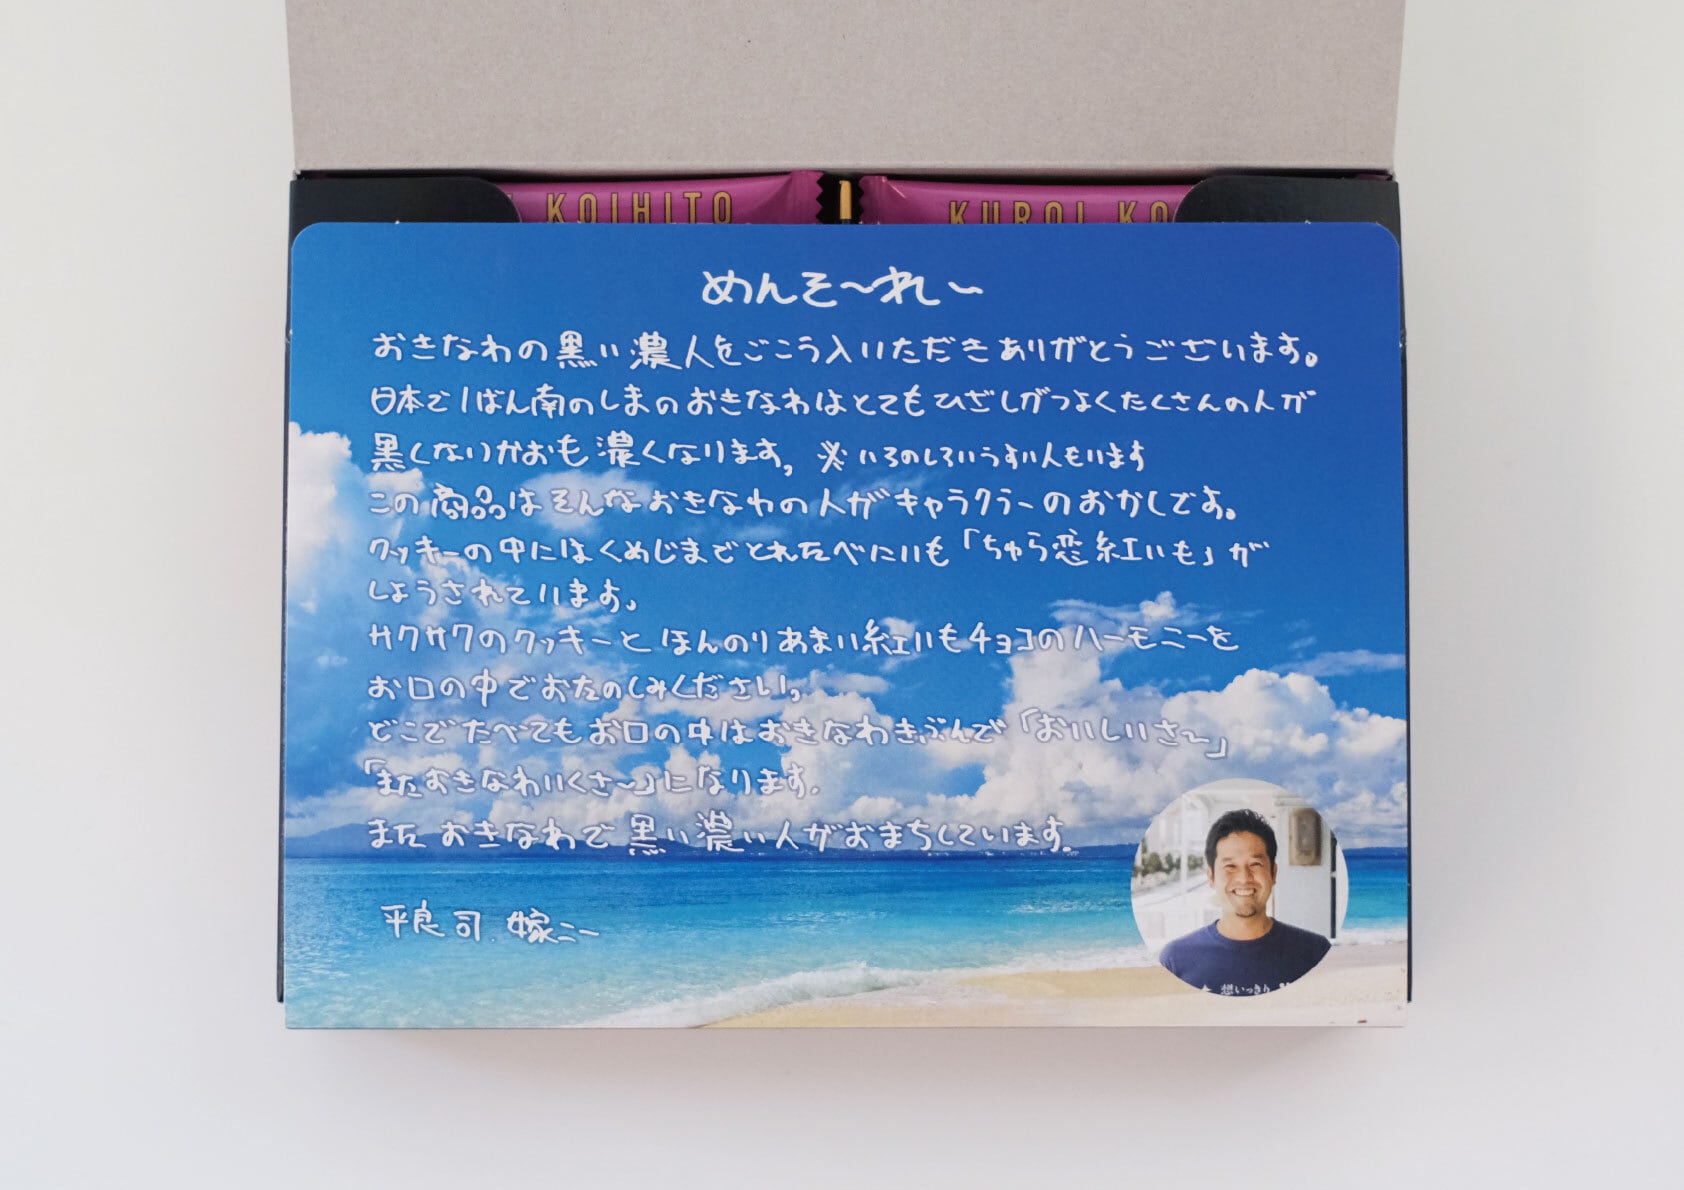 KOIHITO
KUROI KO
めんそ〜れ〜
おきなわの黒い濃人をごこう入いただきありがとうございます。
日本で1ばん南のしまのおきなわはとてもひざしがつよくたくさんの人が
黒くないかおも濃くなります。※いろのしろいうすい人もいます
この商品はそんなおきなわの人がキャラクラーのおかしです。
クッキーの中にはくめじまでとれたべにいも「ちゅら恋紅いも」が
しようされています。
サクサクのクッキーとほんのりあまい紅いもチョコのハーモニーを
お口の中でおたのしみください。
どこでたべてもお口の中はおきなわきぶんで「おいしいさ〜」
「またおきなわいくさ〜」になります。
またおきなわで黒い濃い人がおまちしています。
平良司 嫁ニー
想いっきり